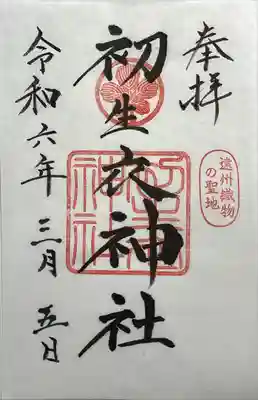 奉拝
遠州織物
の聖地
初生衣神社
令和六年三月五日